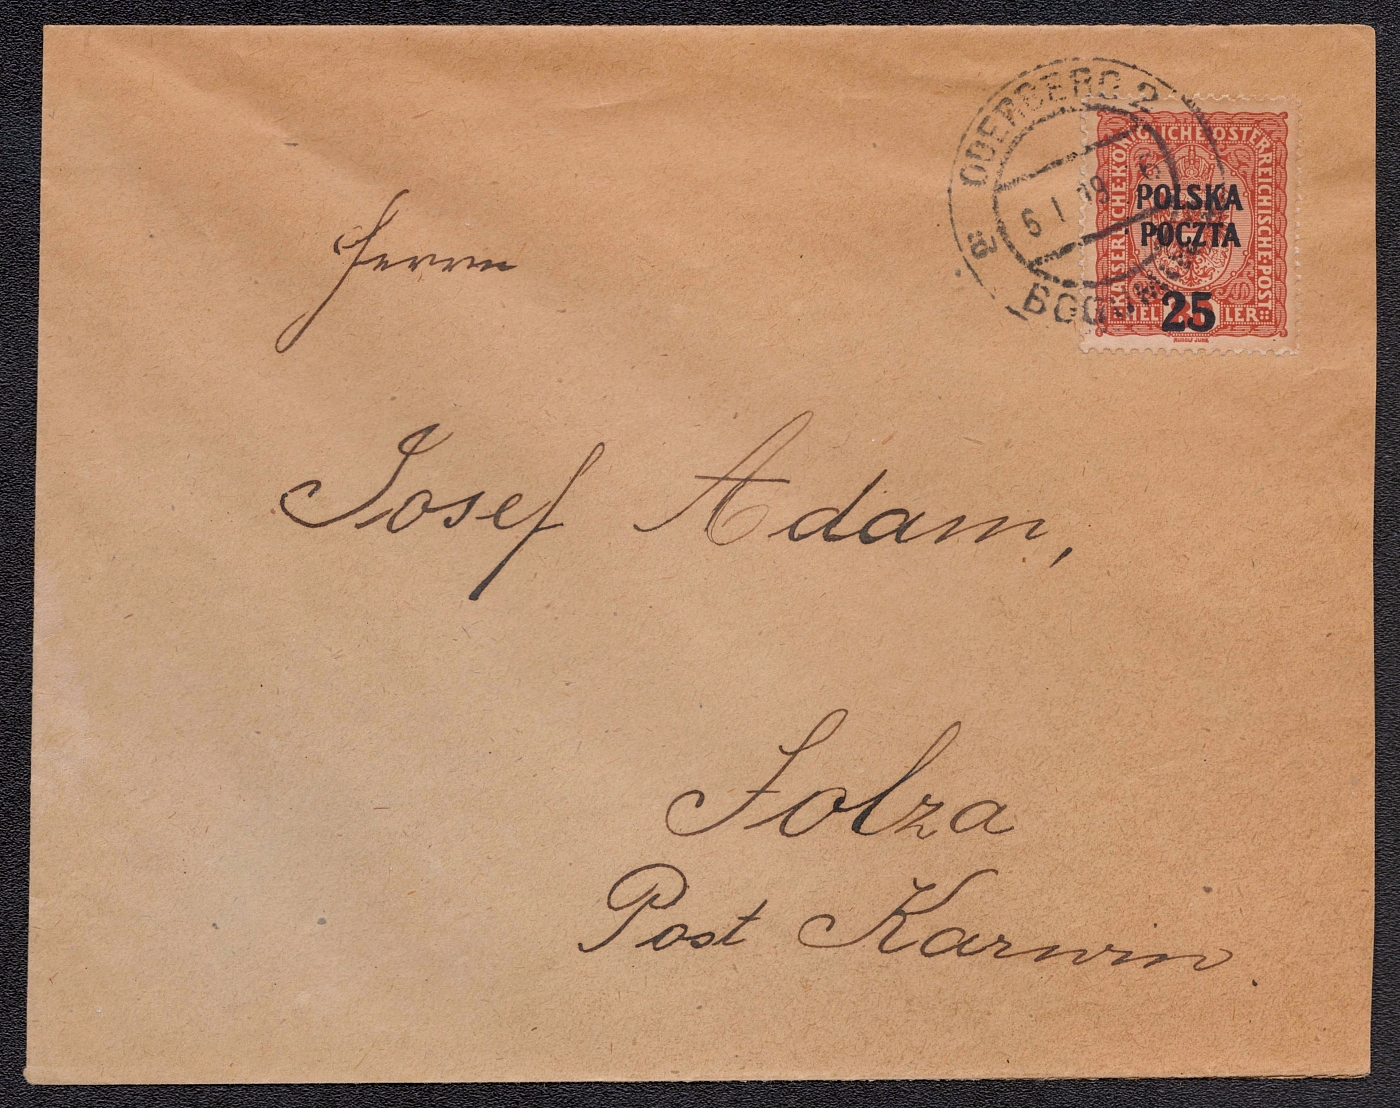 ODERBERG 2
6 I 19
a
POLSKA
POCZTA
25
KAISERLICHE·KÖNIGLICHE·ÖSTERREICHISCHE·POST
HELLER
RUDOLF JUNK
Herrn
Josef Adam,
Solza
Post Karwin.